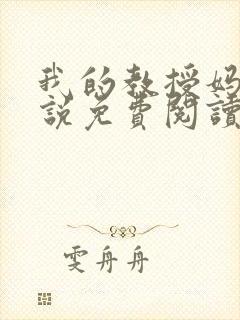 我的教授妈
説免費閱讀
雯舟舟